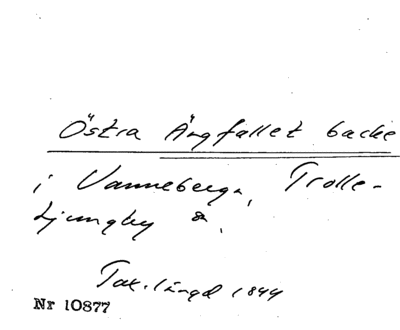 Östra Ängfallet backe
i Vanneberga, Trolle-
Ljungby s.
Tax.längd 1844
Nr 10877